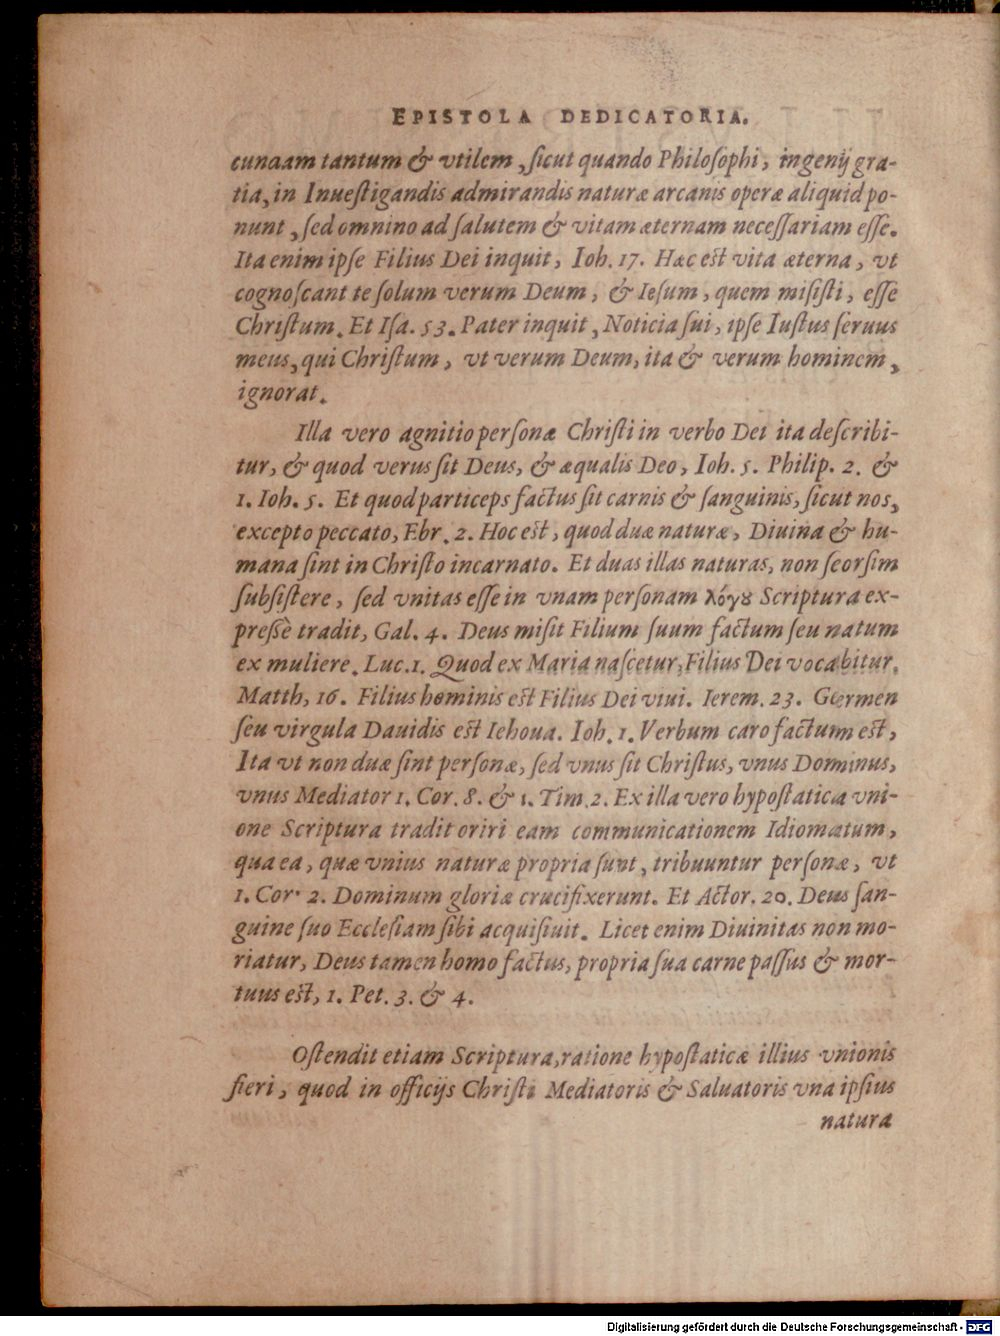 EPISTOLA DEDICATORIA.
cunaam tantum & vtilem, ſicut quando Philoſophi, ingenij gra-
tia, in Inueſtigandis admirandis naturæ arcanis operæ aliquid po-
nunt, ſed omnino ad ſalutem & vitam æternam neceſſariam eſſe.
Ita enim ipſe Filius Dei inquit, Ioh. 17. Hæc eſt vita æterna, vt
cognoſcant te ſolum verum Deum, & Ieſum, quem miſiſti, eſſe
Chriſtum. Et Iſa. 53. Pater inquit, Noticia ſui, ipſe Iuſtus ſeruus
meus, qui Chriſtum, vt verum Deum, ita & verum hominem,
ignorat.
Illa vero agnitio perſonæ Chriſti in verbo Dei ita deſcribi-
tur, & quod verus ſit Deus, & æqualis Deo, Ioh. 5. Philip. 2. &
1. Ioh. 5. Et quod particeps factus ſit carnis & ſanguinis, ſicut nos,
excepto peccato, Ebr. 2. Hoc eſt, quod duæ naturæ, Diuina & hu-
mana ſint in Chriſto incarnato. Et duas illas naturas, non ſeorſim
ſubſiſtere, ſed vnitas eſſe in vnam perſonam λόγȣ Scriptura ex-
preſſè tradit, Gal. 4. Deus miſit Filium ſuum factum ſeu natum
ex muliere. Luc. 1. Quod ex Maria naſcetur, Filius Dei vocabitur.
Matth, 16. Filius hominis eſt Filius Dei viui. Ierem. 23. Germen
ſeu virgula Dauidis eſt Iehoua. Ioh. 1. Verbum caro factum eſt,
Ita vt non duæ ſint perſonæ, ſed vnus ſit Chriſtus, vnus Dominus,
vnus Mediator 1. Cor. 8. & 1. Tim. 2. Ex illa vero hypoſtatica vni-
one Scriptura tradit oriri eam communicationem Idiomatum,
qua ea, quæ vnius naturæ propria ſunt, tribuuntur perſonæ, vt
1. Cor. 2. Dominum gloriæ crucifixerunt. Et Actor. 20. Deus ſan-
guine ſuo Eccleſiam ſibi acquiſiuit. Licet enim Diuinitas non mo-
riatur, Deus tamen homo factus, propria ſua carne paſſus & mor-
tuus eſt, 1. Pet. 3. & 4.
Oſtendit etiam Scriptura, ratione hypoſtaticæ illius vnionis
fieri, quod in officijs Chriſti Mediatoris & Saluatoris vna ipſius
natura
Digitalisierung gefördert durch die Deutsche Forschungsgemeinschaft - DFG